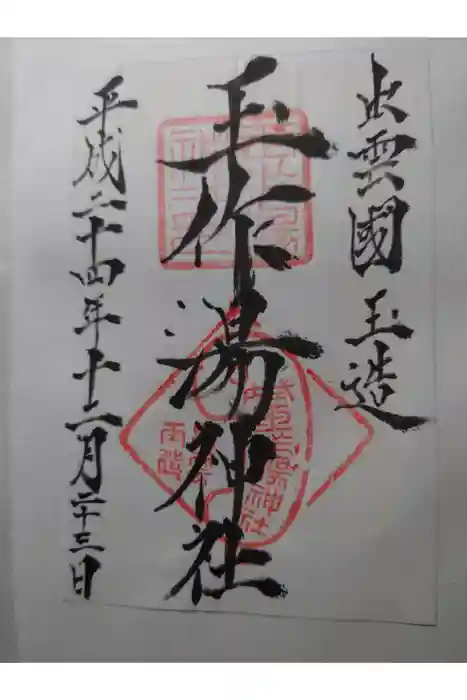 出雲國玉造
玉作湯神社
平成二十四年十二月二十三日